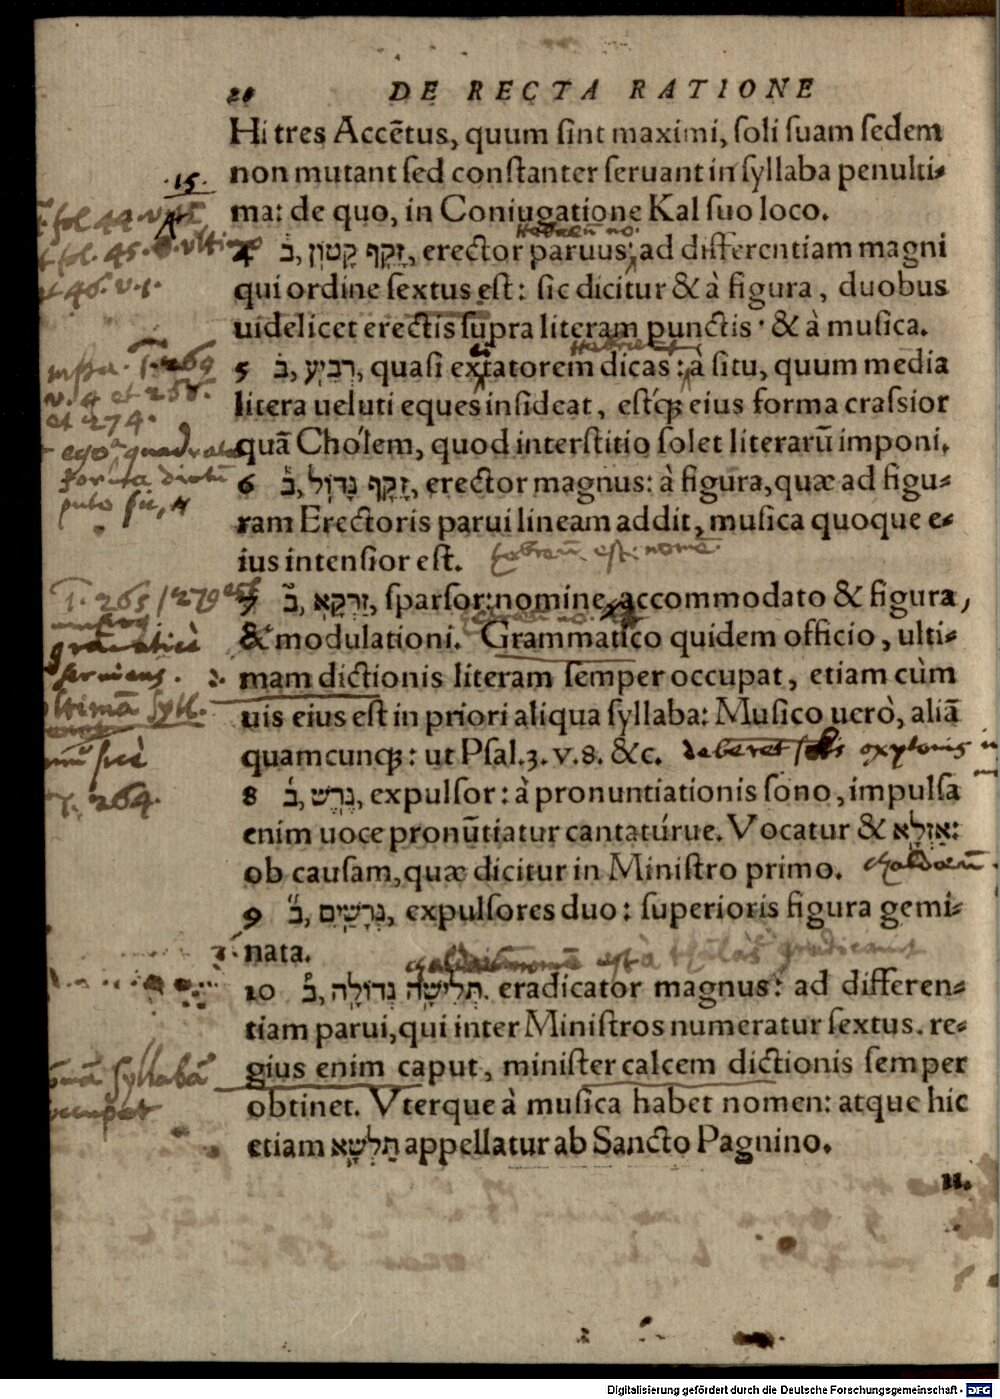 20 DE RECTA RATIONE
Hi tres Accẽtus, quum ſint maximi, ſoli ſuam ſedem
non mutant ſed conſtanter ſeruant in ſyllaba penulti-
.15.
ma: de quo, in Coniugatione Kal ſuo loco.
fol 44. v. 15
4 זָקֵף קָטוֹן, בֿ, erector paruus: ad differentiam magni
fol. 45. vltimo
qui ordine ſextus eſt: ſic dicitur & à figura, duobus
46. v. 1.
uidelicet erectis ſupra literam punctis · & à muſica.
5 רְבִיעַ, בֿ, quaſi extatorem dicas: à ſitu, quum media
269
v. 4 et 268.
litera ueluti eques inſideat, eſtq́; eius forma craſsior
et 274.
quã Cholem, quod interſtitio ſolet literarũ imponi.
ego quadrata
forma dictũ
puto ſic,
6 זָקֵף גָדוֹל, בֿ, erector magnus: à figura, quæ ad figu-
ram Erectoris parui lineam addit, muſica quoque e-
ius intenſior eſt. hebreũ est nomẽ
265 / 279
7 זַרְקָא, בֿ, ſparſor: nomine accommodato & figura,
& modulationi. Grammatico quidem officio, ulti-
gramaticè
ſeruiens.
mam dictionis literam ſemper occupat, etiam cùm
vltimã ſyll.
uis eius eſt in priori aliqua ſyllaba: Muſico uerò, aliã
muſicè
quamcunq;: ut Pſal.3.v.8. &c. deberet oxytonis
264.
8 גֶרֶשׁ, בֿ, expulſor: à pronuntiationis ſono, impulſa
enim uoce pronũtiatur cantatúrue. Vocatur & אַזְלָא:
ob cauſam, quæ dicitur in Miniſtro primo. chaldæũ
9 גְרָשַׁיִם, בֿ, expulſores duo: ſuperioris figura gemi-
nata.
est à
10 תְּלִישָׁה גְדוֹלָה, בֿ. eradicator magnus: ad differen-
tiam parui, qui inter Miniſtros numeratur ſextus. re-
ſyllabã
occupat
gius enim caput, miniſter calcem dictionis ſemper
obtinet. Vterque à muſica habet nomen: atque hic
etiam תַּלְשָׁא appellatur ab Sancto Pagnino.
11.
Digitalisierung gefördert durch die Deutsche Forschungsgemeinschaft - DFG